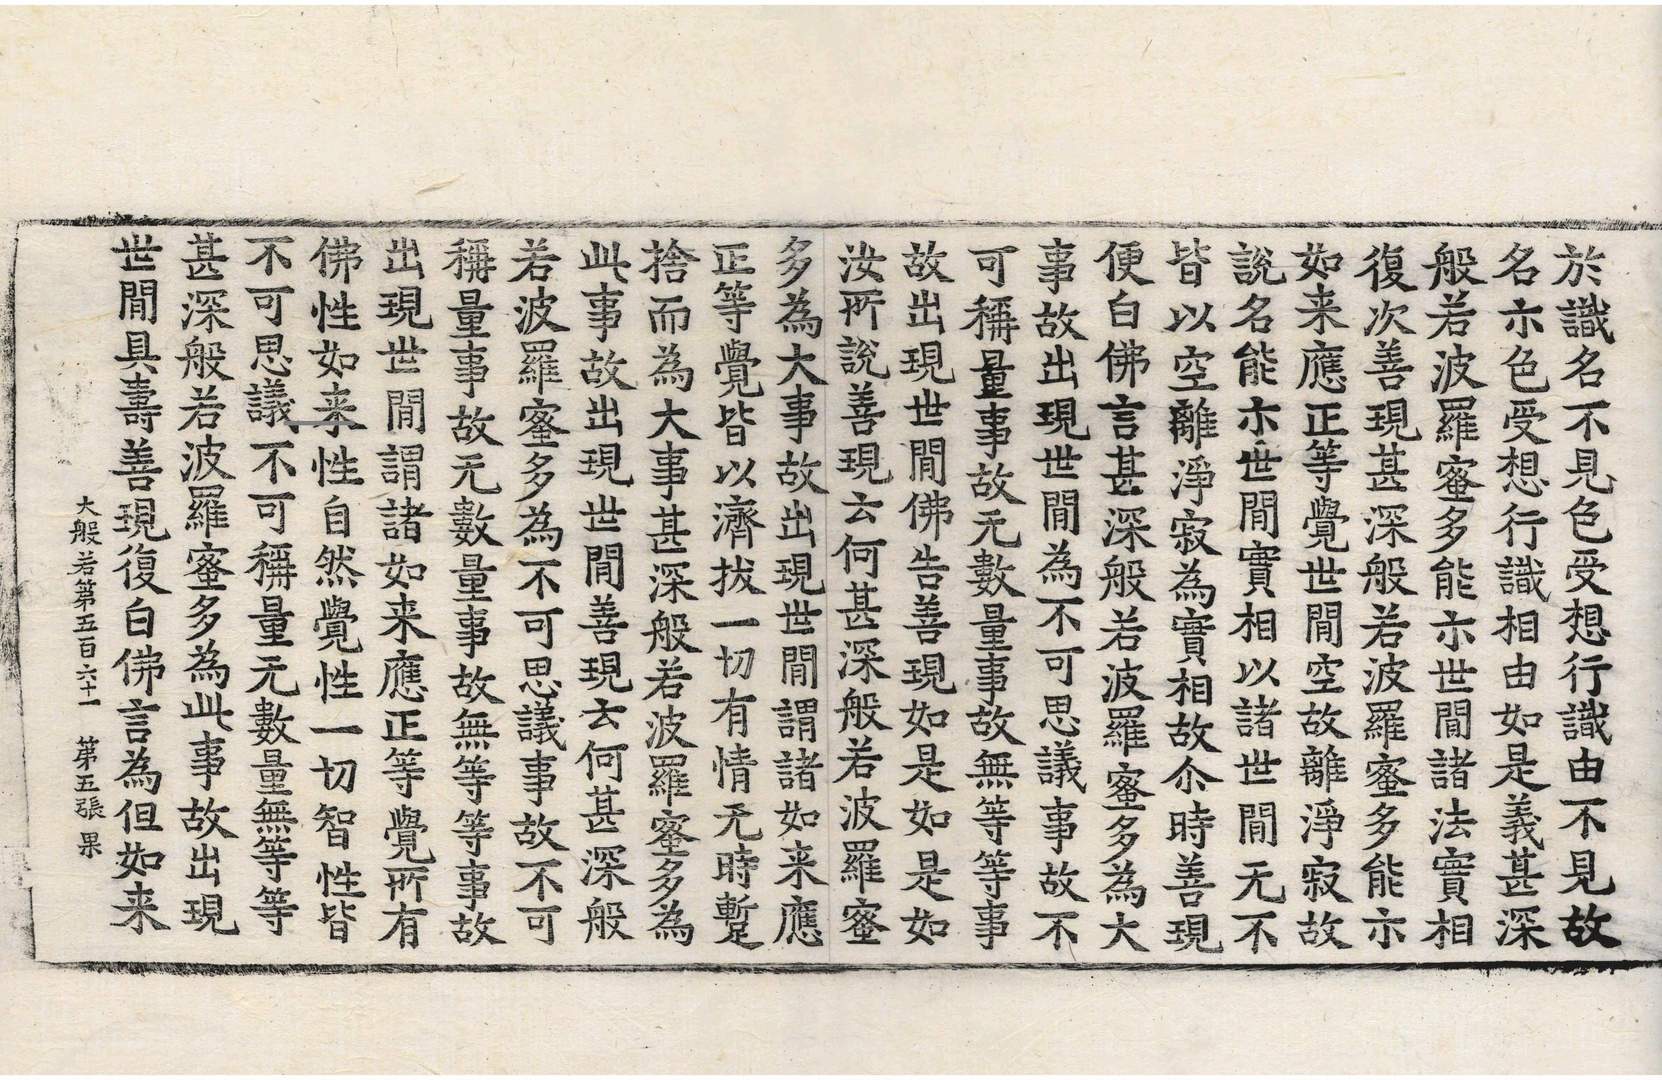 於識名不見色受想行識由不見故
名亦色受想行識相由如是義甚深
般若波羅蜜多能示世間諸法實相
復次善現甚深般若波羅蜜多能示
如来應正等覺世間空故離淨寂故
說名能示世間實相以諸世間无不
皆以空離淨寂為實相故尒時善現
便白佛言甚深般若波羅蜜多為大
事故出現世間為不可思議事故不
可稱量事故无數量事故無等等事
故出現世間佛告善現如是如是如
汝所說善現云何甚深般若波羅蜜
多為大事故出現世間謂諸如来應
正等覺皆以濟拔一切有情无時蹔
捨而為大事甚深般若波羅蜜多為
此事故出現世間善現云何甚深般
若波羅蜜多為不可思議事故不可
稱量事故无數量事故無等等事故
出現世間謂諸如来應正等覺所有
佛性如来性自然覺性一切智性皆
不可思議不可稱量无數量無等等
甚深般若波羅蜜多為此事故出現
世間具壽善現復白佛言為但如来
大般若第五百六十一 第五張 果